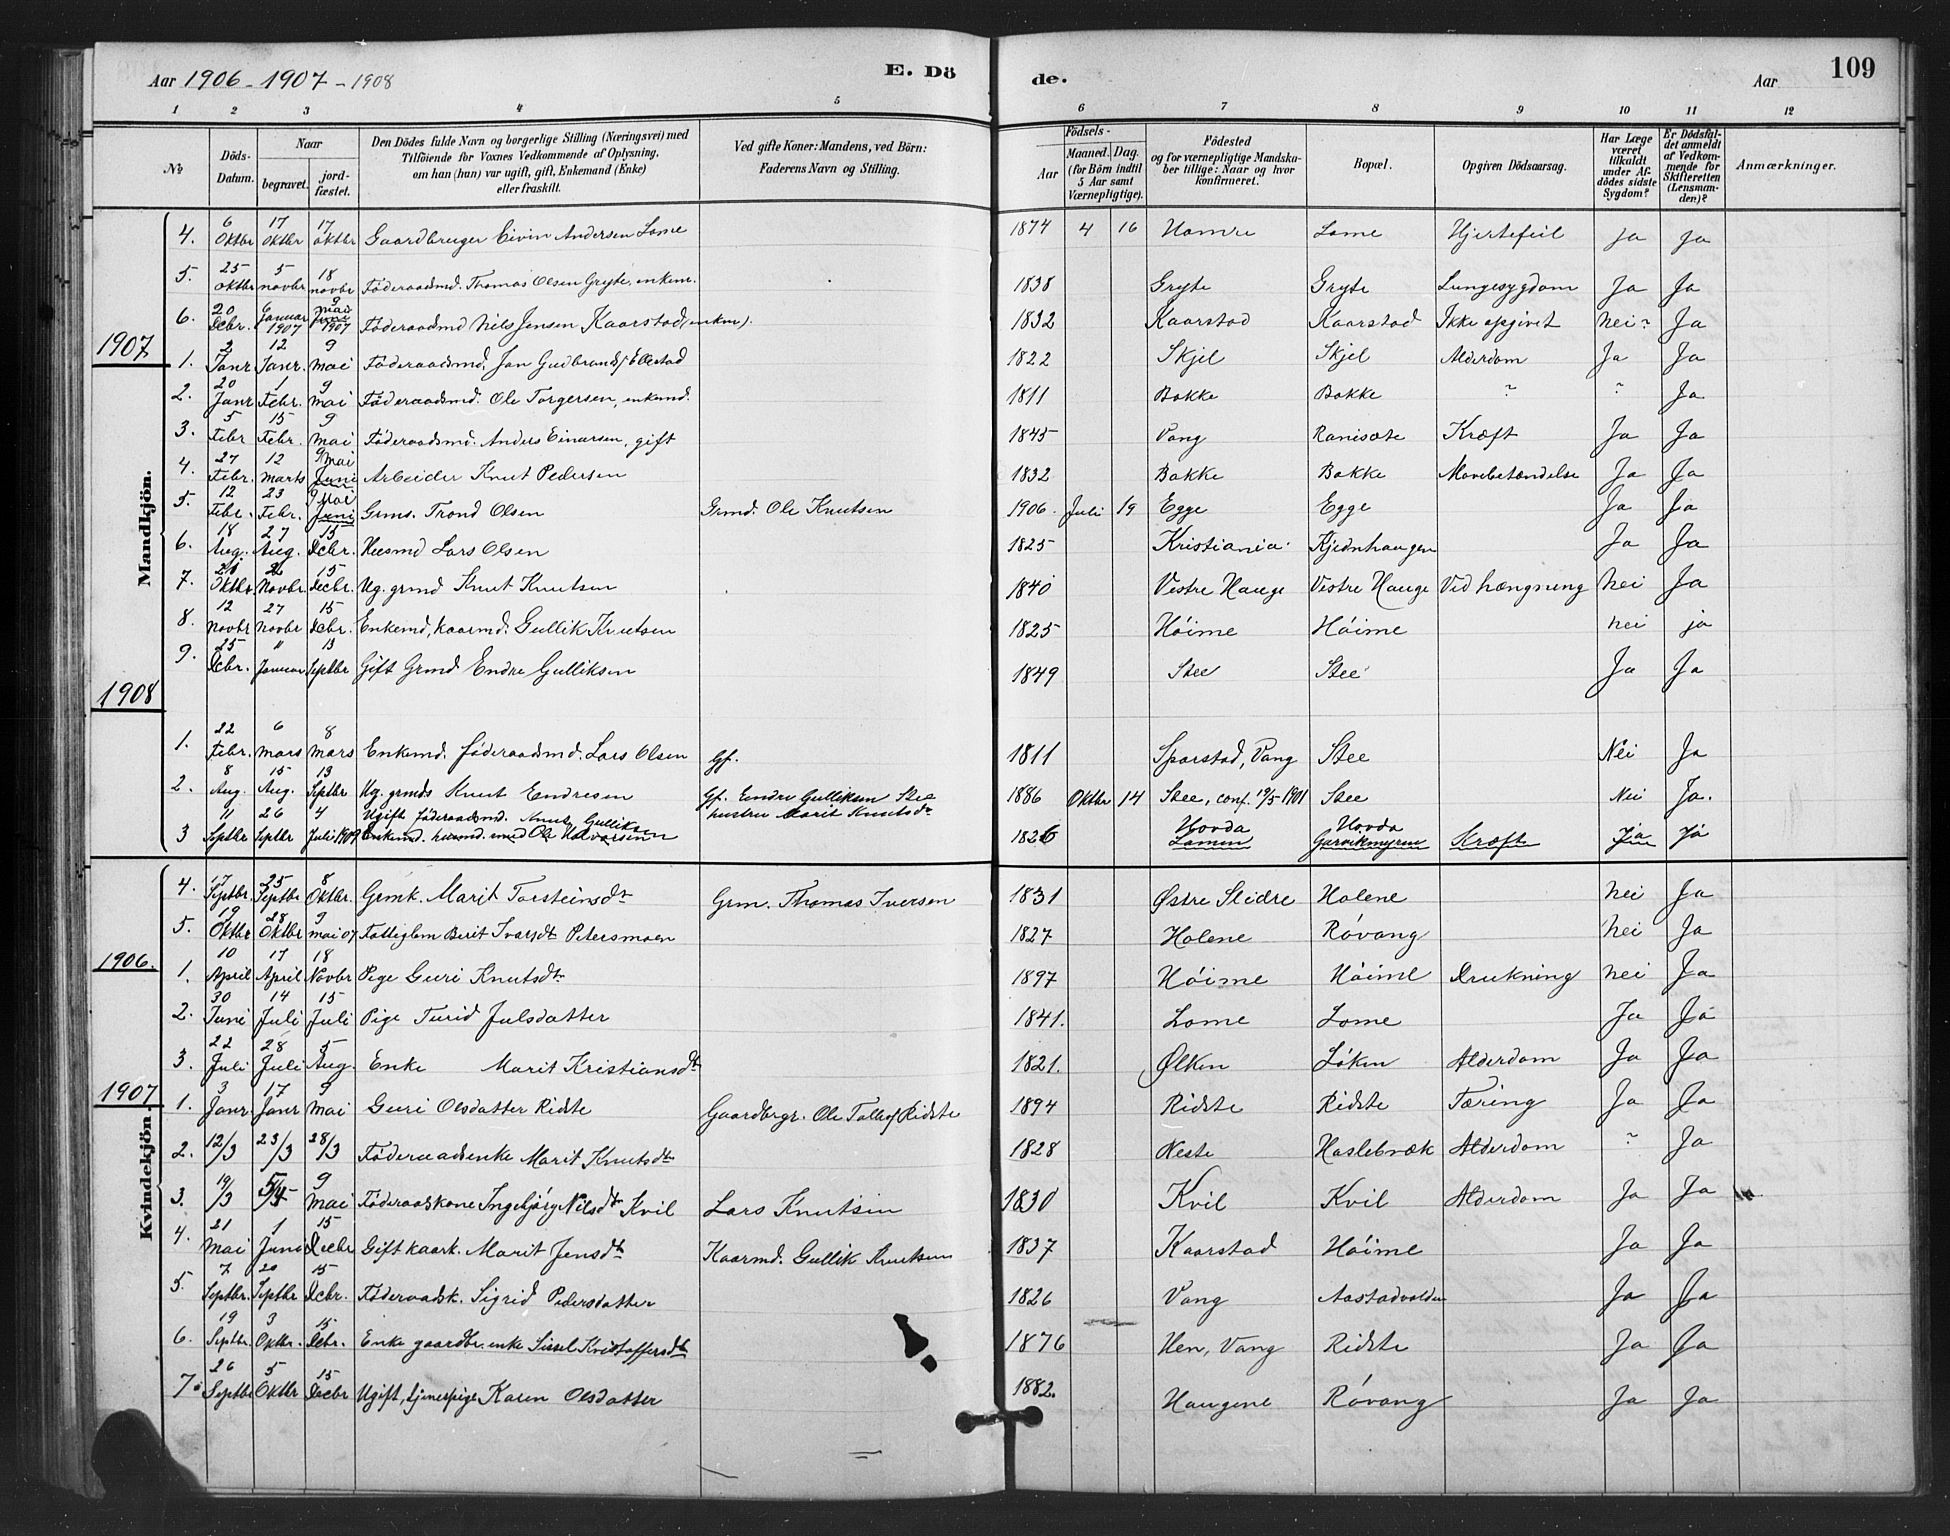 Aar 1906 - 1907 - 1908
E. Döde.
Aar
109
1 2 3 4 5 6 7 8 9 10 11 12
№
Döds-Datum.
Naar
begravet.
jord-fæstet.
Den Dödes fulde Navn og borgerlige Stilling (Næringsvei) med
Tilföiende for Voxnes Vedkommende af Oplysning,
om han (hun) var ugift, gift, Enkemand (Enke)
eller fraskilt.
Ved gifte Koner: Mandens, ved Börn:
Faderens Navn og Stilling.
Födsels-
Aar
Maaned. Dag.
(for Börn indtil
5 Aar samt
Værnepligtige).
Födested
og for værnepligtige Mandska-
ber tillige: Naar og hvor
konfirmeret.
Bopæl.
Opgiven Dödsaarsag.
Har Læge
været
tilkaldt
under Af-
dödes sidste
Sygdom?
Er Dödsfal-
det anmeldt
af Vedkom-
mende for
Skifteretten
(Lensman-
den)?
Anmærkninger.
Mandkjön.
4. 6 Oktbr 17 Oktbr 17 oktbr Gaardbruger Eivin Andersen Lome 1874 4 16 Hamre Lome Hjertefeil ja ja
5. 25 oktbr 5 novbr 18 novbr Föderaadsmd. Thomas Olsen Gryte, enkem. 1838 Gryte Gryte Lungesygdom Ja Ja
6. 20 Decbr. 6 Januar 1907 9 mai Juni 1907 Föderaadsmd Nils Jensen Kaarstad (enkm). 1832 Kaarstad Kaarstad Ikke opgivet Nei Ja
1907
1. 2 Janr 12 Janr. 9 mai Föderaadsmd. Jon Gudbrands. Ellestad 1822 Skjel Skjel Alderdom Ja Ja
2. 20 Janr 1 Febr. 9 mai Föderaadsmd. Ole Torgersen, enkemd. 1811 Bakke Bakke ? ? Ja
3. 5 Febr 15 Febr. 9 mai Föderaadsmd. Anders Einarsen, gift 1845 Vang Ranisæte Kræft Ja Ja
4. 27 Febr. 12 Marts 9 Mai Juni Arbeider Knut Pedersen 1832 Bakke Bakke Mavebetændelse Ja Ja
5. 12 Febr. 23 Febr. 9 Mai Juni Grms. Trond Olsen Grmd. Ole Knutsen 1906 Juli 19 Egge Egge Ja Ja
6. 18 Aug. 27 Aug. 15 Dcbr. Husmd Lars Olsen 1825 Kristiania Kjednhaugen Ja Ja
7. 21 Oktbr. 2 Novbr 15 Decbr. Ug. grmd Knut Knutsen 1840 Vestre Hauge Vestre Hauge Ved hængning Nei Ja
8. 12 Novbr 27 Novbr 15 Dcbr. Enkemd, kaarmd. Gullik Knutsen 1825 Höime Höime nei ja
9. 25 Dcbr. " Januar 13 Septbr Gift Grmd Endre Gulliksen 1849 Stee Stee Ja Ja
1908
1. 22 Febr. 6 Mars 8 Mars Enkemd. föderaadsmd. Lars Olsen Gf. 1811 Sparstad, Vang Stee Nei Ja
2. 8 Aug. 15 Aug. 13 Septbr Ug. grmds Knut Endresen Gf. Endre Gulliksen Stee hustru Marit Knutsdtr 1886 Oktbr 14 Stee, conf. 19/5 1901 Stee Nei Ja.
3 11 Septbr 26 Septbr 4 Juli 1909 Ugift föderaadsmd. Knut Gulliksen Enkemd. husmd. Ole Halvorsen 1826 Hovda Lomen Hovda Garvikmyren Kræft Ja Ja
Kvindekjön.
4. 17 Septbr. 25 Septbr 8 Oktbr. Grmk. Marit Torsteinsdtr Grm. Thomas Iversen 1831 Østre Slidre Holene Nei Ja
5. 19 Oktbr 28 Oktbr 9 mai 07 Fattiglem Berit Ivarsdtr Petersmoen 1827 Holene Rövang Nei Ja
1906.
1. 10 April 17 April 18 Novbr Pige Guri Knutsdtr 1897 Höime Höime Drukning Nei Ja
2. 30 Juni 14 Juli 15 Juli Pige Turid Julsdatter 1841. Lome Lome Ja Ja
3. 22 Juli 28 Juli 5 Aug. Enke Marit Kristiansdtr 1821. Ølken Löken Alderdom Ja Ja
1907
1. 3 Janr. 17 Janr 9 Mai Guri Olsdatter Ridste Gaardbrgr. Ole Tollefs. Ridste 1894 Ridste Ridste Tæring Ja Ja
2. 12/3 23/3 28/3 Föderaadsenke Marit Knutsdtr 1828 Neste Haslebræk Alderdom ? Ja
3. 19/3 5/4 9 Mai Föderaadskone Ingebjörg Nilsdtr Kvil Lars Knutsen 1830 Kvil Kvil Alderdom Ja Ja
4. 21 Mai 1 Juni 15 Decbr Gift kaark. Marit Jensdtr Kaarmd. Gullik Knutsen 1837 Kaarstad Höime Ja Ja
5. 7 Septbr. 20 Septbr 15 Dcbr. Föderaadsk. Sigrid Pedersdatter 1826 Vang Aastadvolden Ja Ja
6. 19 Septbr. 3 Oktbr. 15 Dcbr. Enke gaardbr. enke Sissel Kristoffersdtr 1876 Hen, Vang Ridste Ja Ja
7. 26 Septbr 5 Oktbr 15 Decbr Ugift, tjenespige Karen Olsdatter 1882. Haugene Rövang Ja Ja